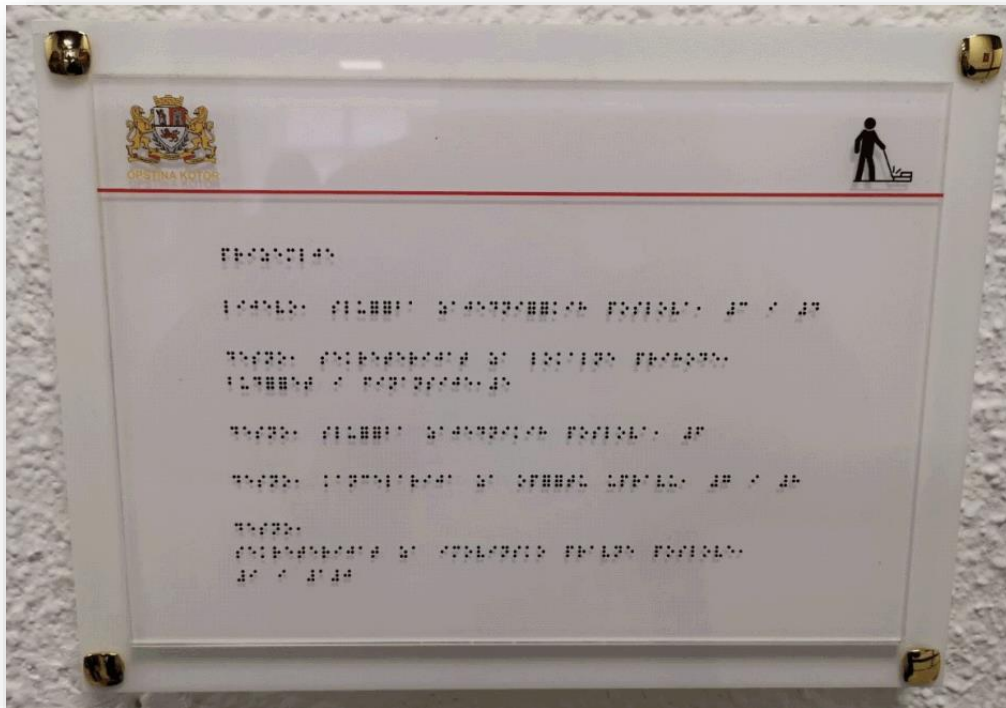 OPŠTINA KOTOR
⠏⠗⠊⠵⠑⠍⠇⠚⠑
⠇⠊⠚⠑⠧⠕⠂ ⠎⠇⠥⠿⠿⠃⠁ ⠵⠁⠚⠑⠙⠝⠊⠿⠿⠅⠊⠓ ⠏⠕⠎⠇⠕⠧⠁⠂ ⠼⠉ ⠊ ⠼⠙
⠙⠑⠎⠝⠕⠂ ⠎⠑⠅⠗⠑⠞⠑⠗⠊⠚⠁⠞ ⠵⠁ ⠇⠕⠅⠁⠇⠝⠑ ⠏⠗⠊⠓⠕⠙⠑⠂
⠃⠥⠙⠿⠿⠑⠞ ⠊ ⠋⠊⠝⠁⠝⠎⠊⠚⠑⠂⠼⠑
⠙⠑⠎⠝⠕⠂ ⠎⠇⠥⠿⠿⠃⠁ ⠵⠁⠚⠑⠙⠝⠎⠅⠊⠓ ⠏⠕⠎⠇⠕⠧⠁⠂ ⠼⠋
⠙⠑⠎⠝⠕⠂ ⠅⠁⠝⠉⠑⠇⠁⠗⠊⠚⠁ ⠵⠁ ⠕⠏⠿⠿⠞⠥ ⠥⠏⠗⠁⠧⠥⠂ ⠼⠛ ⠊ ⠼⠓
⠙⠑⠎⠝⠕⠂
⠎⠑⠅⠗⠑⠞⠑⠗⠊⠚⠁⠞ ⠵⠁ ⠊⠍⠕⠧⠊⠝⠎⠅⠕ ⠏⠗⠁⠧⠝⠑ ⠏⠕⠎⠇⠕⠧⠑⠂
⠼⠊ ⠊ ⠼⠁⠼⠚